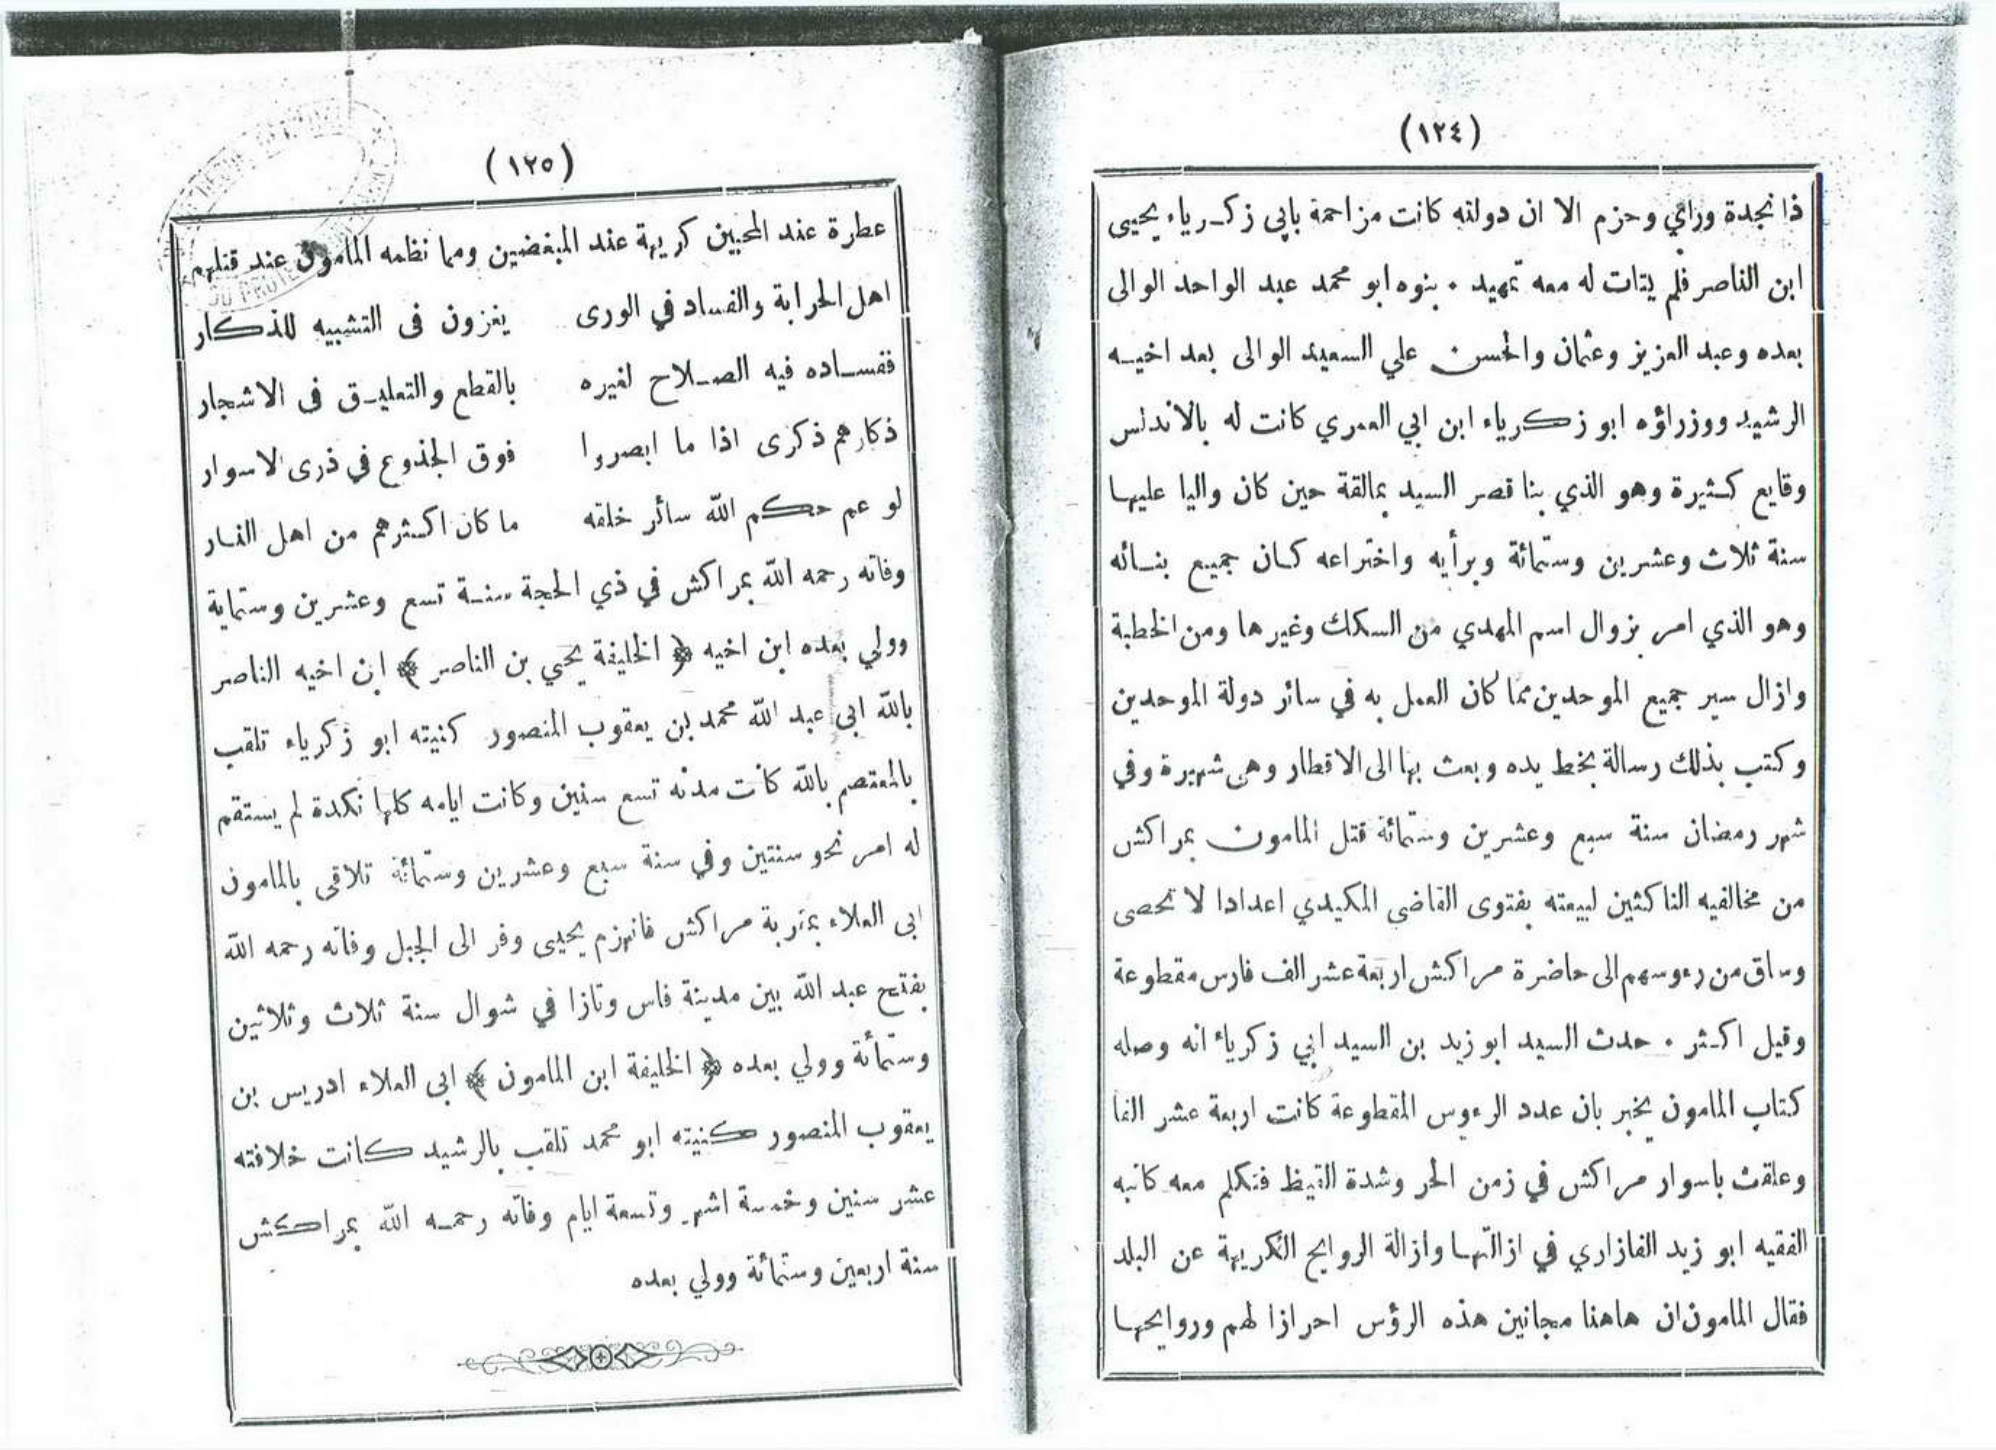 (١٢٤)
ذا نجدة وراي وحزم الا ان دولته كانت مزاحمة بابى زكرياء يحيى
ابن الناصر فلم يتات له معه تمهيد ٠ بنوه ابو محمد عبد الواحد الوالى
بعده وعبد العزيز وعثمان والحسن علي السعيد الوالى بعد اخيه
الرشيد ووزراؤه ابو زكرياء ابن ابي الغمري كانت له بالاندلس
وقايع كثيرة وهو الذي بنا قصر السيد بمالقة حين كان واليا عليها
سنة ثلاث وعشرين وستمائة وبرأيه واختراعه كان جميع بنائه
وهو الذي امر بزوال اسم المهدي من السكك وغيرها ومن الخطبة
وازال سير جميع الموحدين مما كان العمل به في سائر دولة الموحدين
وكتب بذلك رسالة بخط يده وبعث بها الى الاقطار وهى شهيرة وفي
شهر رمضان سنة سبع وعشرين وستمائة قتل المامون بمراكش
من مخالفيه الناكثين لبيعته بفتوى القاضى المكيدي اعدادا لا تحصى
وساق من رءوسهم الى حاضرة مراكش اربعة عشر الف فارس مقطوعة
وقيل اكثر ٠ حدث السيد ابو زيد بن السيد ابي زكرياء انه وصله
كتاب المامون يخبر بان عدد الرءوس المقطوعة كانت اربعة عشر الفا
وعلقت باسوار مراكش في زمن الحر وشدة القيظ فتكلم معه كاتبه
الفقيه ابو زيد الفازاري في ازالتها وازالة الروايح الكريهة عن البلد
فقال المامون ان هاهنا مجانين هذه الرؤس احرازا لهم وروايحها
(١٢٥)
عطرة عند المحبين كريهة عند المبغضين ومما نظمه المامون عند قتلهم
اهل الحرابة والفساد في الورى يغزون فى التشبيه للذكار
ففساده فيه الصلاح لغيره بالقطع والتعليق فى الاشجار
ذكارهم ذكرى اذا ما ابصروا فوق الجذوع في ذرى الاسوار
لو عم حكم الله سائر خلقه ما كان اكثرهم من اهل النار
وفاته رحمه الله بمراكش في ذي الحجة سنة تسع وعشرين وستماية
وولي بعده ابن اخيه ﴿ الخليفة يحيي بن الناصر ﴾ ابن اخيه الناصر
بالله ابي عبد الله محمد بن يعقوب المنصور كنيته ابو زكرياء تلقب
بالمعتصم بالله كانت مدته تسع سنين وكانت ايامه كلها نكدة لم يستقم
له امر نحو سنتين وفي سنة سبع وعشرين وستمائة تلاقى بالمامون
ابى العلاء بمقربة مراكش فانهزم يحيى وفر الى الجبل وفاته رحمه الله
بفتح عبد الله بين مدينة فاس وتازا في شوال سنة ثلاث وثلاثين
وستمأئة وولي بعده ﴿ الخليفة ابن المامون ﴾ ابى العلاء ادريس بن
يعقوب المنصور كنيته ابو محمد تلقب بالرشيد كانت خلافته
عشر سنين وخمسة اشهر وتسعة ايام وفاته رحمه الله بمراكش
سنة اربعين وستمائة وولي بعده